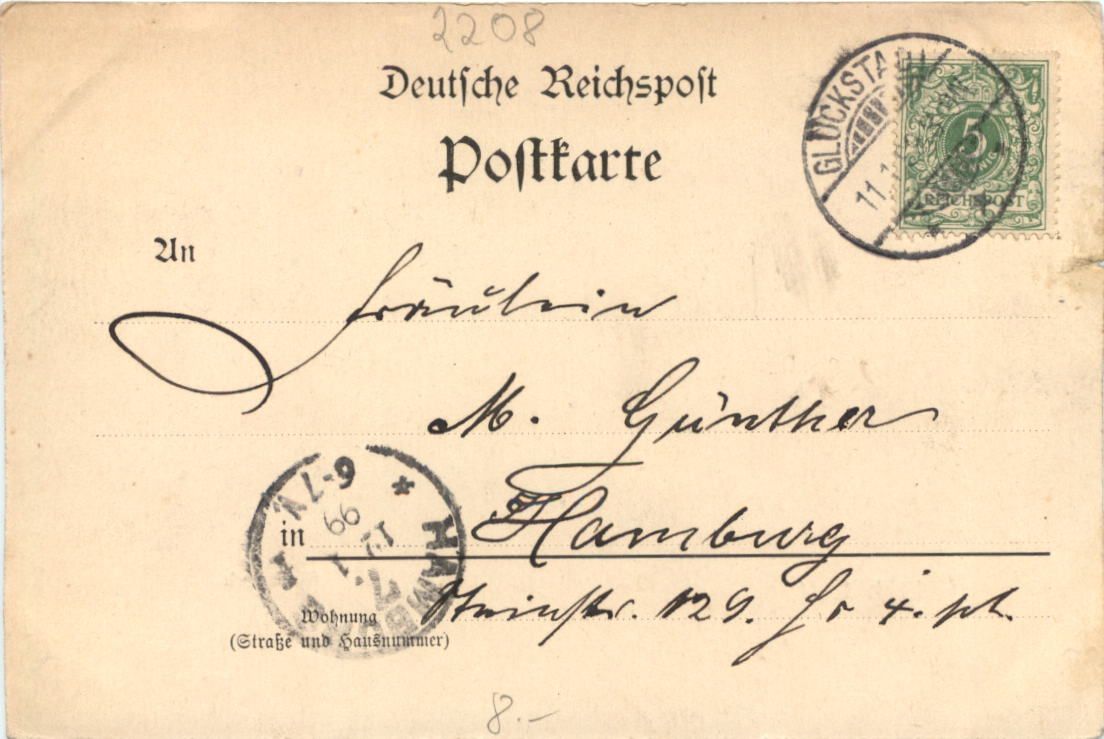 2208
Deutsche Reichspost
Postkarte
GLÜCKSTADT
11.1
5
REICHSPOST
An
Fräulein
M. Günther
in Hamburg
Steinstr. 129. Hs 4. pt.
Wohnung
(Straße und Hausnummer)
HAMBURG
12 1
99
6-7 V.
8.-